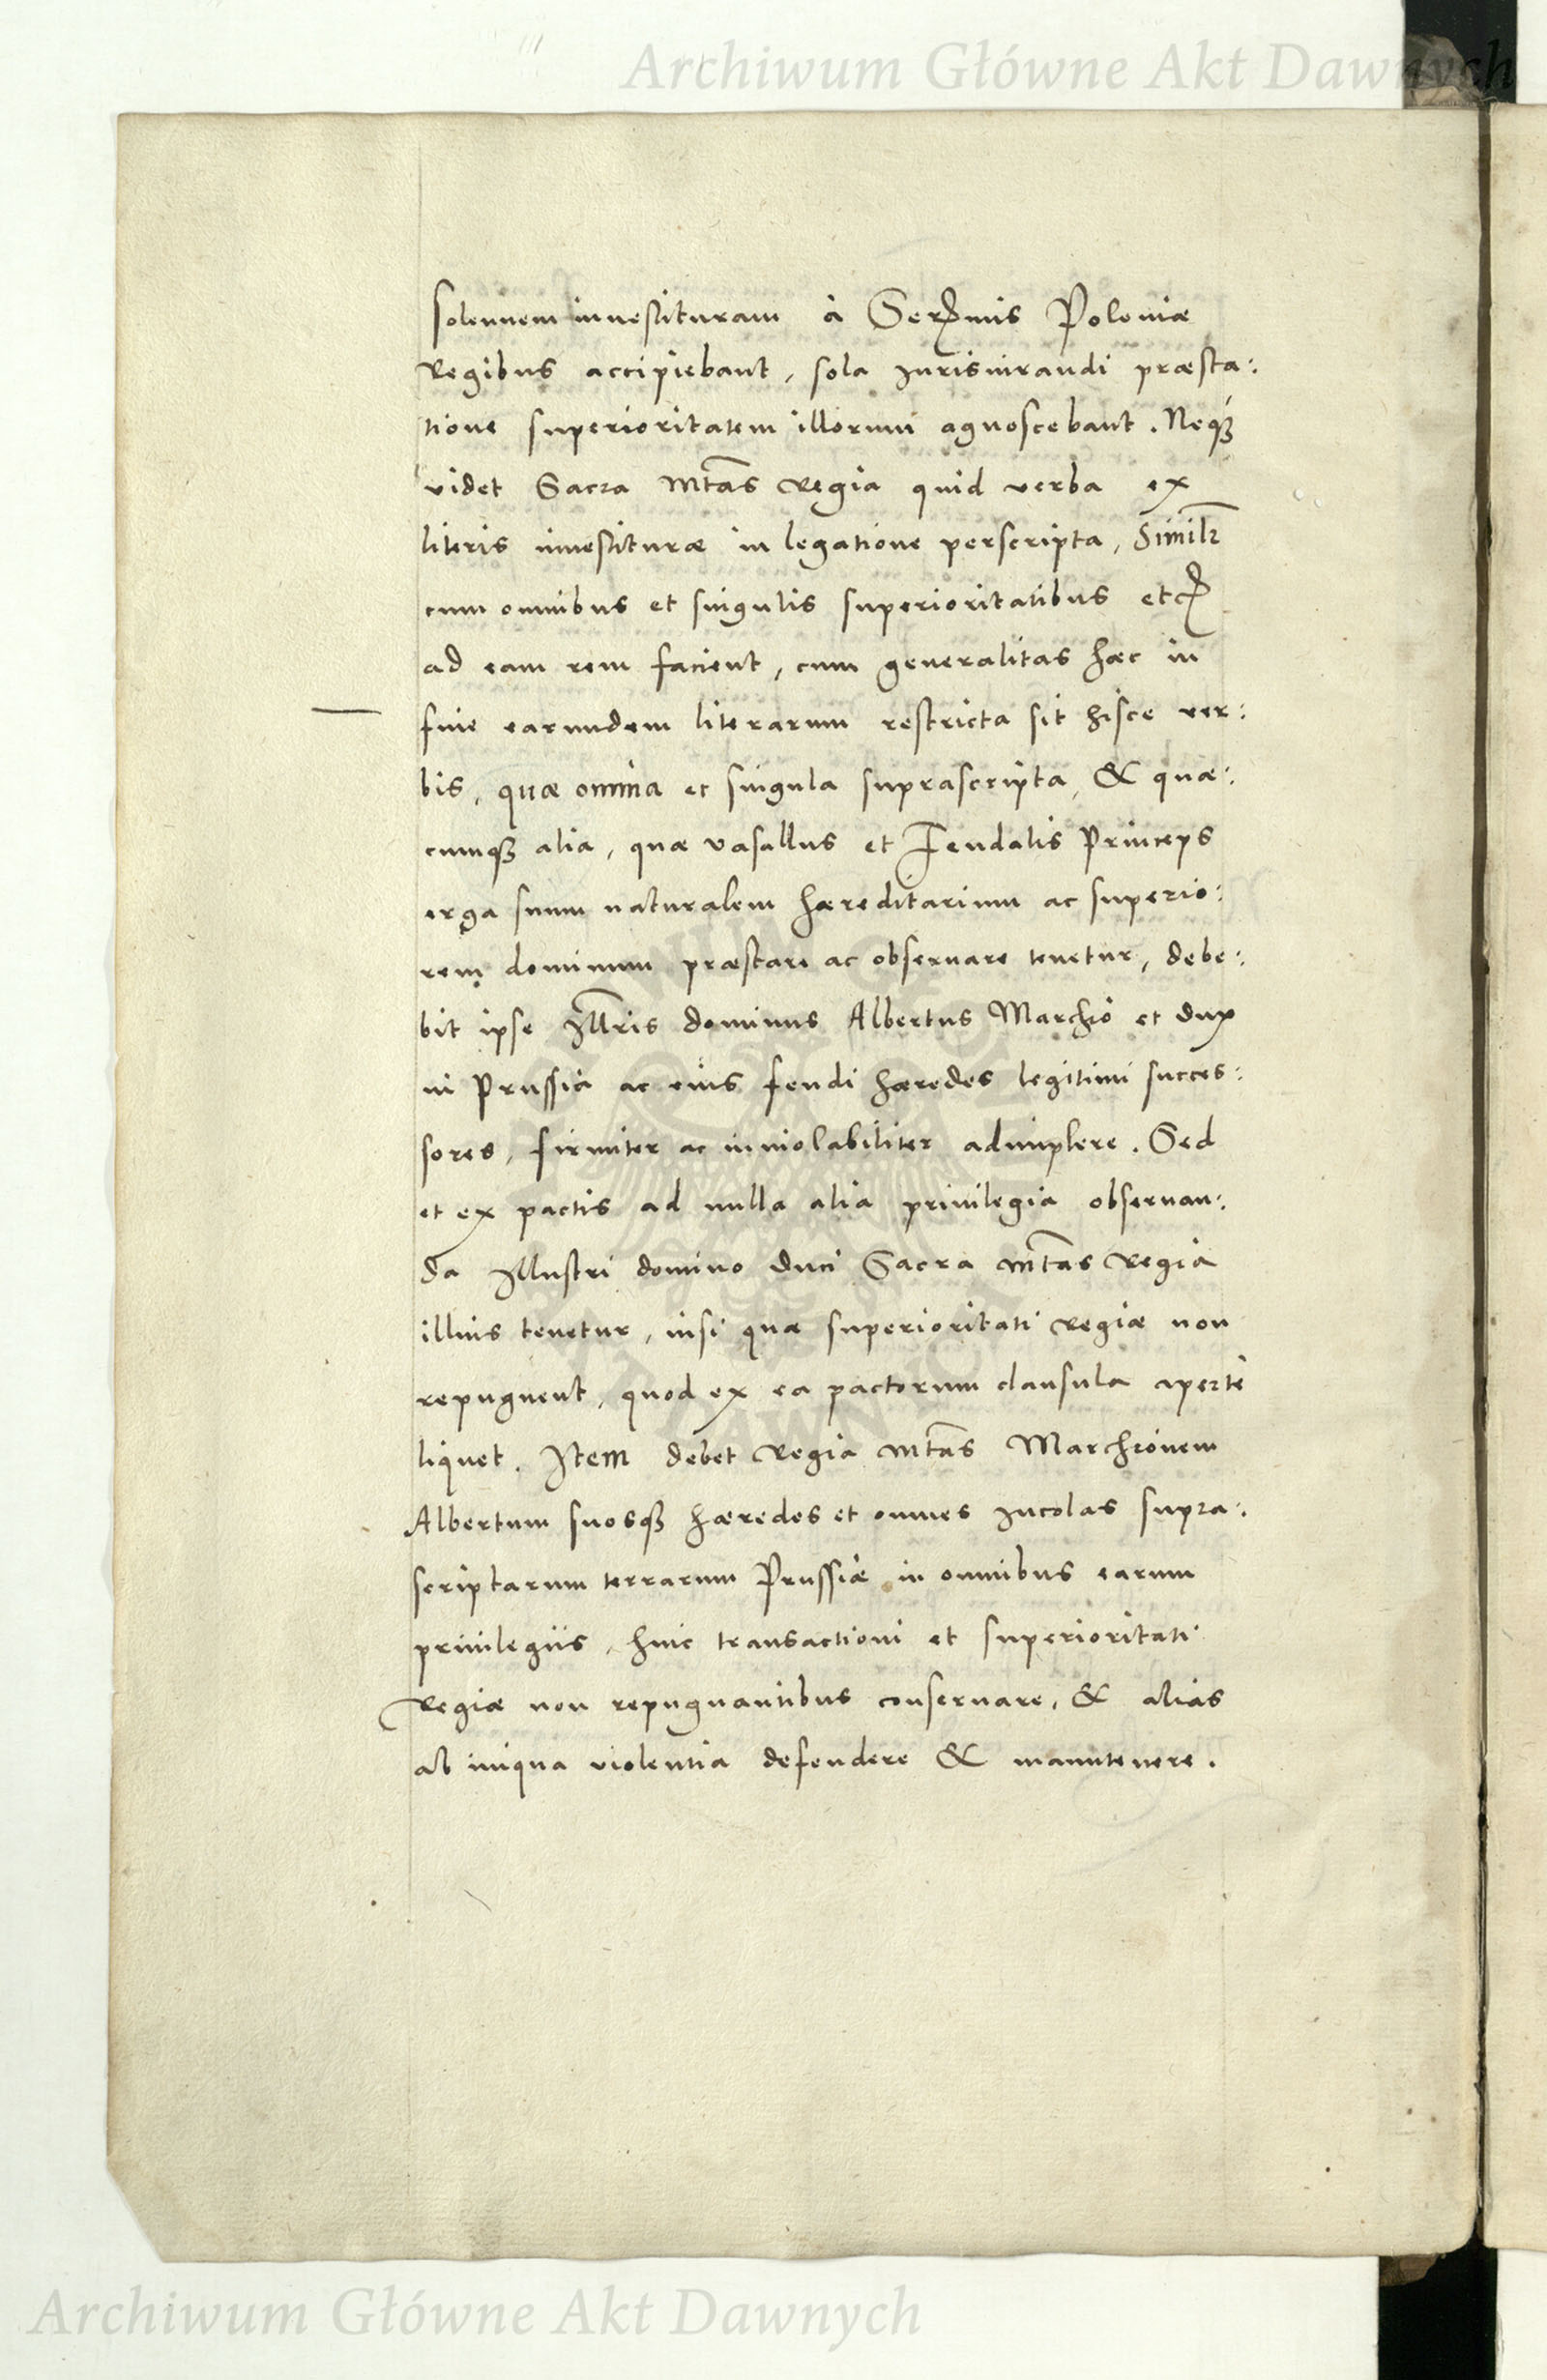 Archiwum Główne Akt Dawnych
solennem inuestituram à Sermis Poloniæ
Regibus accipiebant, sola Iurisiurandi præsta:
tione superioritatem illorum agnoscebant. Neq3
videt Sacra Mtas Regia quid verba ex
literis inuestituræ in legatione perscripta, Similr
cum omnibus et singulis superioritatibus etc
ad eam rem facient, cum generalitas hæc in
fine earundem literarum restricta sit hisce ver:
bis, quæ omnia et singula suprascripta, & quæ:
cumq3 alia, quæ vasallus et Feudalis Princeps
erga suum naturalem hæreditarium ac superio:
rem dominum præstare ac obseruare tenetur, debe:
bit ipse Illris dominus Albertus Marchio et dux
in Prussia ac eius feudi hæredes legitimi succes:
sores, firmiter ac inuiolabiliter adimplere. Sed
et ex pactis ad nulla alia priuilegia obseruan:
da Illustri domino Duci Sacra Mtas Regia
illius tenetur, nisi quæ superioritati Regiæ non
repugnent, quod ex ea pactorum clausula aperte
liquet. Item debet Regia Mtas Marchionem
Albertum suosq3 hæredes et omnes Incolas supra:
scriptarum terrarum Prussiæ in omnibus earum
priuilegiis, huic transactioni et superioritati
Regiæ non repugnantibus conseruare, & alias
ab iniqua violentia defendere & manutenere.
Archiwum Główne Akt Dawnych